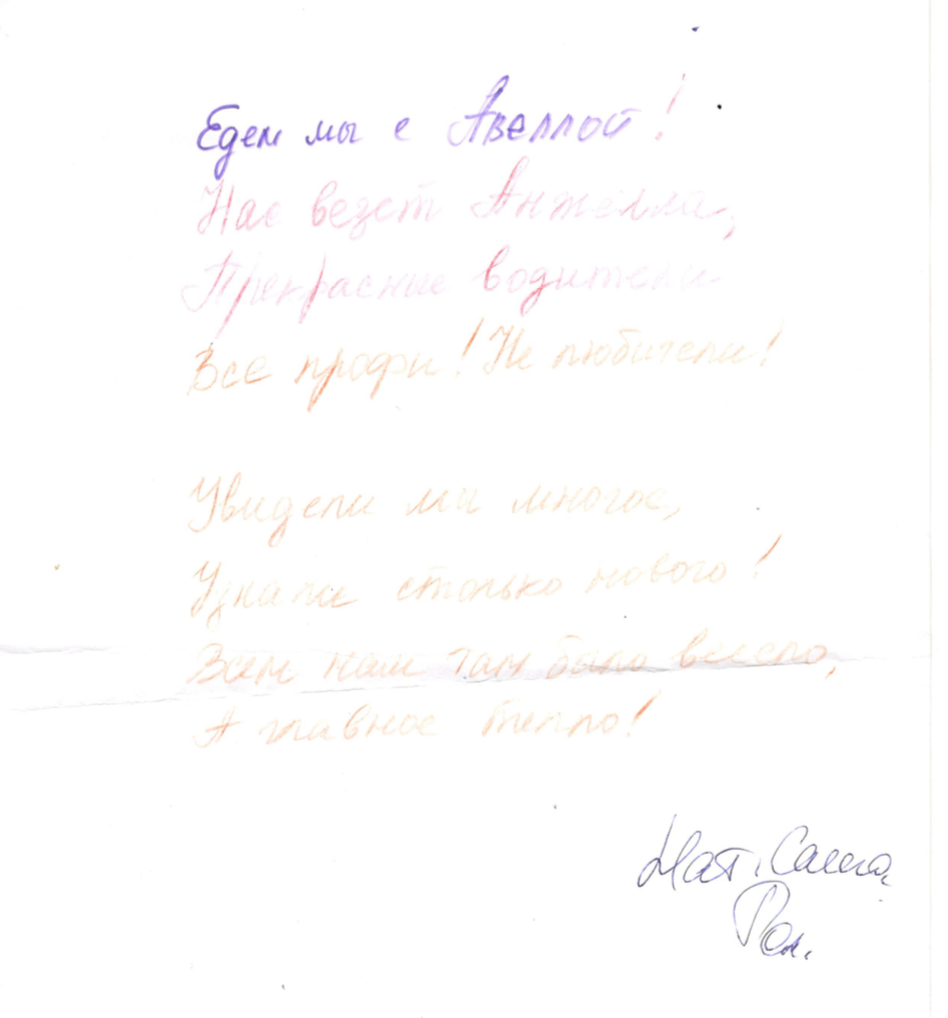 Едем мы с Авеллой!
Нас везёт Анжелла,
Прекрасные водители
Все профи! Не любители!
Увидели мы многое,
Узнали столько нового!
Всем нам там было весело,
А главное тепло!
Нат. Саша.